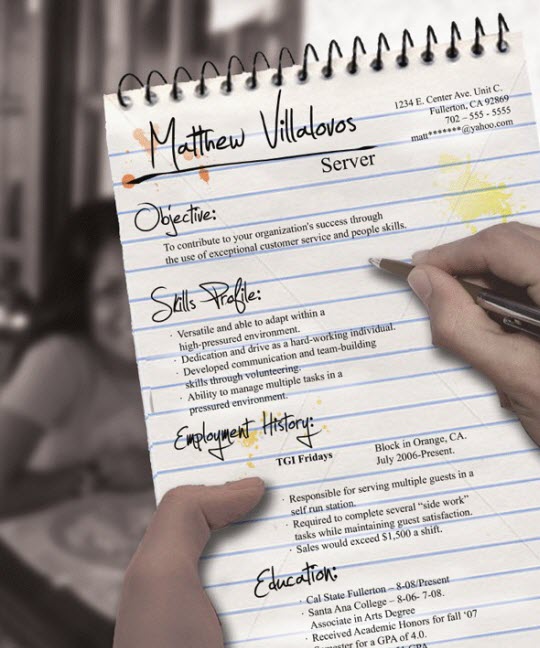 Matthew Villalovos
1234 E. Center Ave. Unit C.
Fullerton, CA 92869
702 – 555 - 5555
matt*******@yahoo.com
Server
Objective:
To contribute to your organization's success through
the use of exceptional customer service and people skills.
Skills Profile:
· Versatile and able to adapt within a
high-pressured environment.
· Dedication and drive as a hard-working individual.
· Developed communication and team-building
skills through volunteering.
· Ability to manage multiple tasks in a
pressured environment.
Employment History:
TGI Fridays
Block in Orange, CA.
July 2006-Present.
· Responsible for serving multiple guests in a
self run station.
· Required to complete several “side work”
tasks while maintaining guest satisfaction.
· Sales would exceed $1,500 a shift.
Education:
· Cal State Fullerton – 8-08/Present
· Santa Ana College – 8-06- 7-08.
Associate in Arts Degree
· Received Academic Honors for fall ‘07
Semester for a GPA of 4.0.
GPA